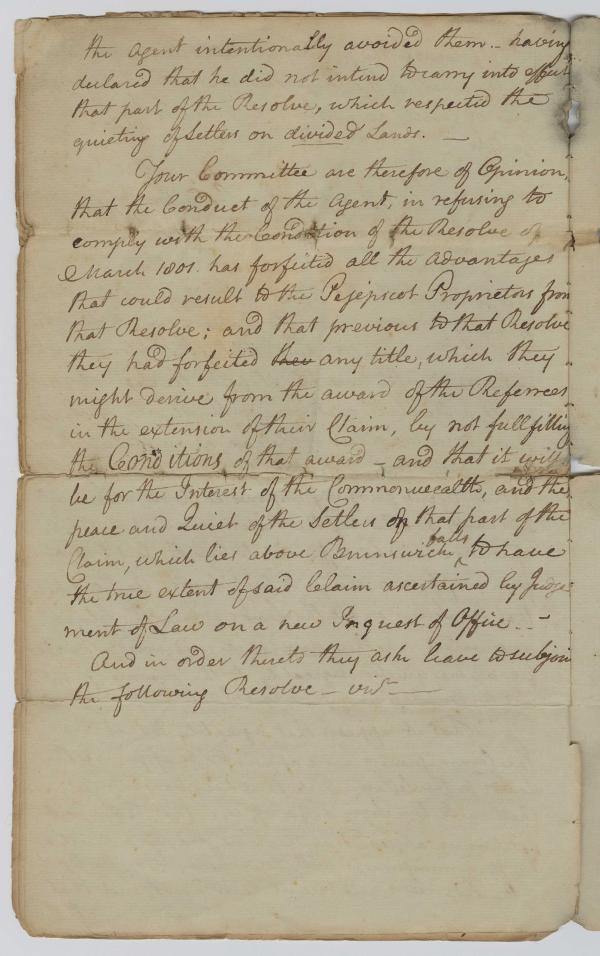 the Agent intentionally avoided them – having
declared that he did not intend to carry into effect
that part of the Resolve, which respected the
quieting of Setlers on divided Lands. —
Your Committee are therefore of Opinion,
that the Conduct of the Agent, in refusing to
comply with the Condition of the Resolve of
March 1801. has forfeited all the advantages
that could result to the Pejepscot Proprietors from
that Resolve; and that previous to that Resolve
they had forfeited their any title, which they
might derive from the award of the Referrees
in the extension of their Claim, by not fullfilling
the Conditions of that award – and that it will
be for the Interest of the Commonwealth, and the
peace and Quiet of the Setlers on that part of the
Claim, which lies above Brunswick falls, to have
the true extent of said Claim ascertained by Judge-
ment of Law on a new Inquest of Office. –
And in order thereto they ask leave to subjoin
the following Resolve – vizt —